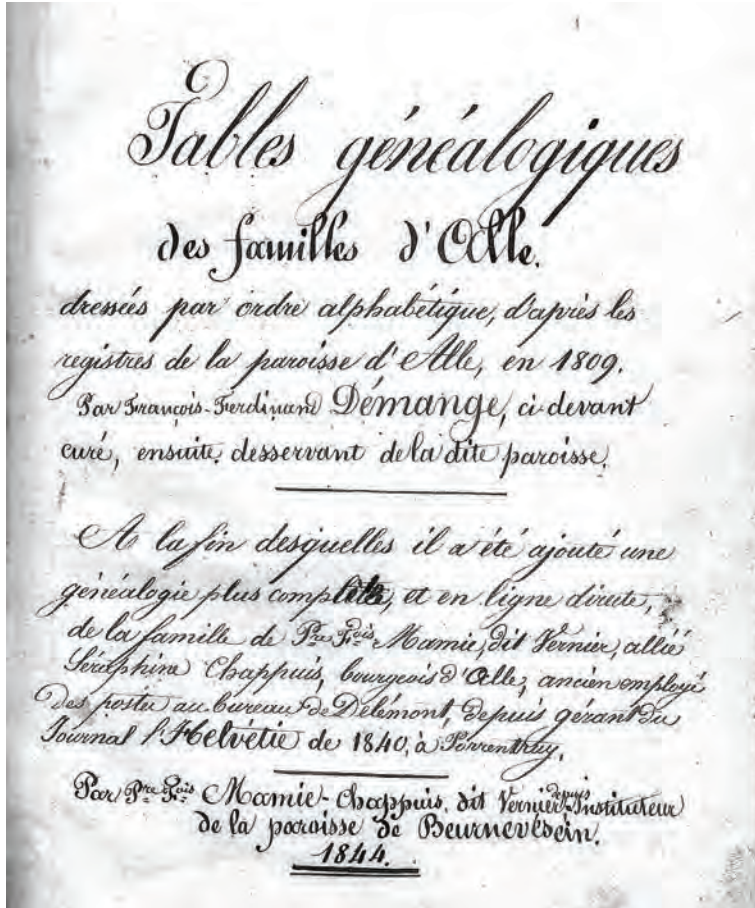 Tables généalogiques
des familles d'Alle.
dressées par ordre alphabétique, d'après les
registres de la paroisse d'Alle, en 1809.
Par François-Ferdinand Démange, ci-devant
curé, ensuite desservant de la dite paroisse.
A la fin desquelles il a été ajouté une
généalogie plus complète, et en ligne directe,
de la famille de Pre. Fois. Mamie, dit Vernier, allié
Séraphine Chappuis, bourgeois d'Alle, ancien employé
des postes au bureau de Delémont, depuis gérant du
Journal l'Helvétie de 1840, à Porrentruy.
Par Pre. Fois. Mamie-Chappuis, dit Vernier, depuis Instituteur
de la paroisse de Beurnevésein.
1844.